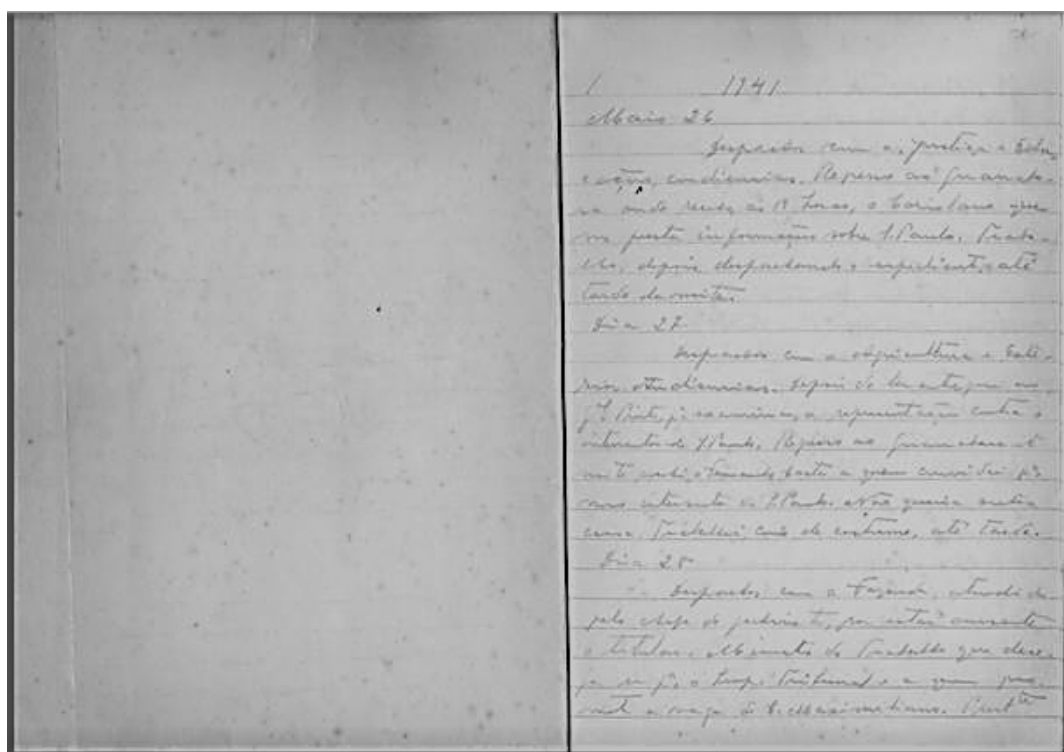 1 1941
Maio 26
Despachos com a Justiça e Edu-
cação, audiencias. Regresso ao Guanaba-
ra onde recebo, ás 19 horas, o Coriolano que
me presta informações sobre S. Paulo. Traba-
lho, depois despachando o expediente, até
tarde da noite.
Dia 27.
Despachos com a Agricultura e Exte-
rior. Audiencias. Depois de
a representação contra o
interventor de S. Paulo. Regresso ao Guanabara. Á
noite recebi o Fernando Costa a quem convidei p.ª
novo interventor de S. Paulo. Não queria outra
cousa. Trabalhei, como de costume, até tarde.
Dia 28
Despachos com a Fazenda, atendido
pelo chefe do gabinete, por estar ausente
o titular. Ministro do Trabalho que dese-
ja ir p.ª o Sup. Tribunal e a quem pro-
meti a vaga do C. Maximiliano.